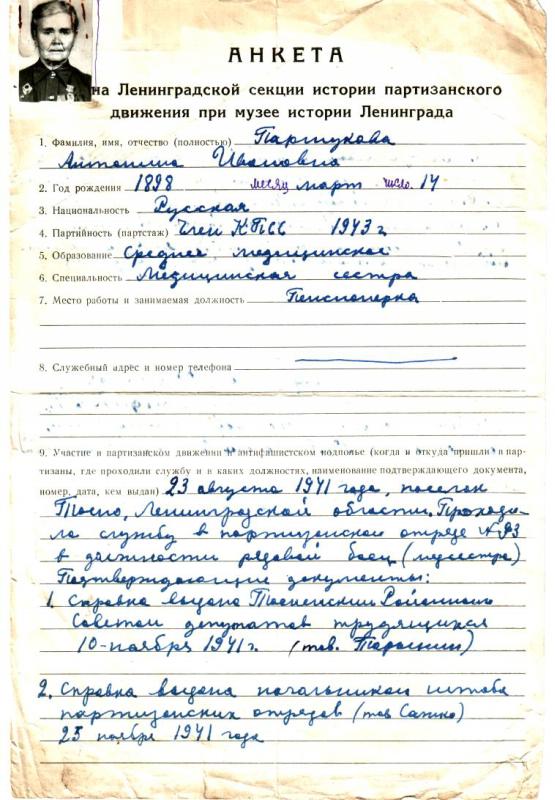 АНКЕТА
на Ленинградской секции истории партизанского
движения при музее истории Ленинграда
1. Фамилия, имя, отчество (полностью) Паршукова
Антонина Ивановна
2. Год рождения 1898 месяц март число 14
3. Национальность Русская
4. Партийность (партстаж) Член КПСС 1943 г
5. Образование Среднее медицинское
6. Специальность Медицинская сестра
7. Место работы и занимаемая должность Пенсионерка
8. Служебный адрес и номер телефона
9. Участие в партизанском движении и антифашистском подполье (когда и откуда пришли в пар-
тизаны, где проходили службу и в каких должностях, наименование подтверждающего документа,
номер, дата, кем выдан) 23 августа 1941 года, поселок
Тосно, Ленинградской области. Проходи-
ла службу в партизанском отряде №
в должности рядовой боец (медсестра)
Подтверждающие документы:
1. Справка выдана Тосненским Районным
Советом депутатов трудящихся
10-ноября 1941 г. (тов.
2. Справка выдана начальником штаба
партизанских отрядов (тов
23 ноября 1941 года